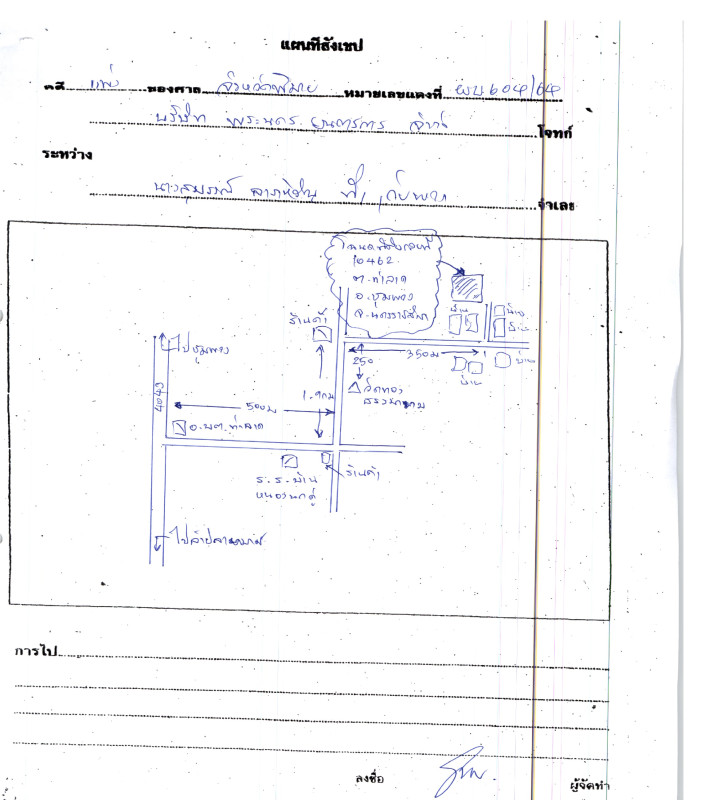 แผนที่สังเขป
คดี แพ่ง ของศาล จังหวัดพิมาย หมายเลขแดงที่ ผบ 604/64
บริษัท พระนคร ยนตรการ จำกัด โจทก์
ระหว่าง
นางสุมาลี ที่ 1 กับพวก จำเลย
โฉนดที่ดินเลขที่
10462
ต.ท่าลาด
อ.ชุมพวง
จ.นครราชสีมา
บ้าน
บ้าน
บ้าน
ร้านค้า
ไปชุมพวง
350 ม
บ้าน
250
บ้าน
วัดทอง
1.9 กม
4043
500 ม
อ.บ.ต.ท่าลาด
ร.ร.บ้าน
หนองนกคู่
ร้านค้า
ไปลำปลายมาศ
การไป
ลงชื่อ
ผู้จัดทำ